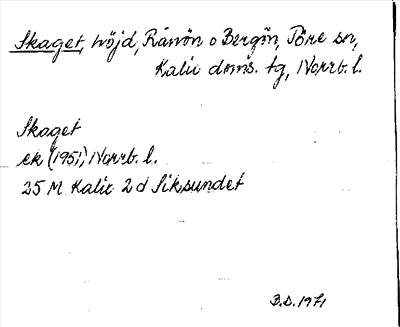 Skaget, höjd, Rånön o Bergön, Töre sn,
Kalix dmns. tg, Norrb. l.
Skaget
ek (1951), Norrb. l.
25 M Kalix 2 d Siksundet
B.D. 1971